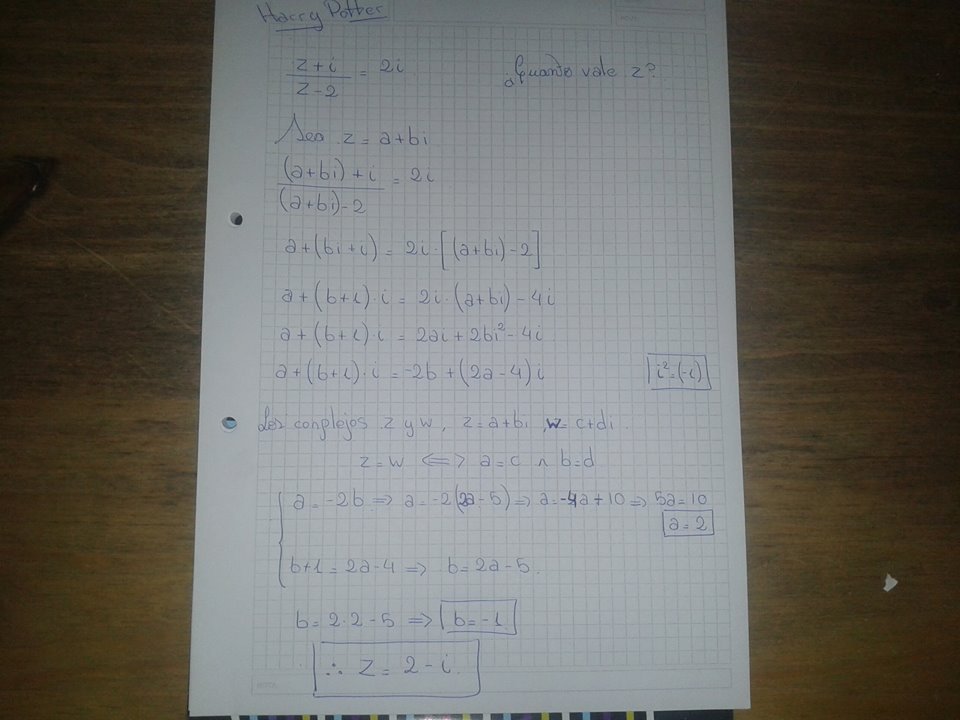 Harry Potter
(z+i)/(z-2) = 2i ¿Cuanto vale z?
Sea z = a+bi
((a+bi)+i)/((a+bi)-2) = 2i
a+(bi+i) = 2i·[(a+bi)-2]
a+(b+1)·i = 2i·(a+bi)-4i
a+(b+1)·i = 2ai+2bi²-4i
a+(b+1)·i = -2b+(2a-4)i i²=(-1)
Los complejos z y w, z=a+bi, w=c+di.
z=w ⟺ a=c ∧ b=d
a=-2b ⟹ a=-2(2a-5) ⟹ a=-4a+10 ⟹ 5a=10
a=2
b+1=2a-4 ⟹ b=2a-5.
b=2·2-5 ⟹ b=-1
∴ z=2-i.